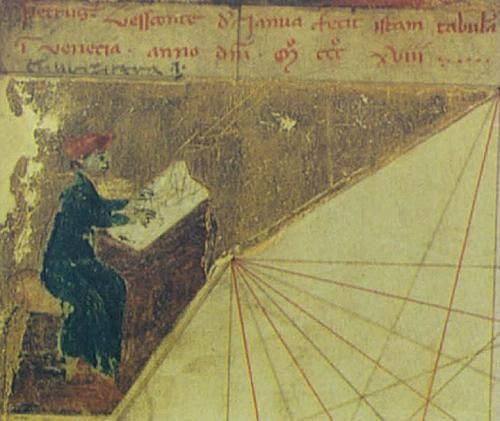 Petrus Vessconte d' Janua fecit istam tabula
ī venecia · anno dñi · mº ccc xviii · · · · ·